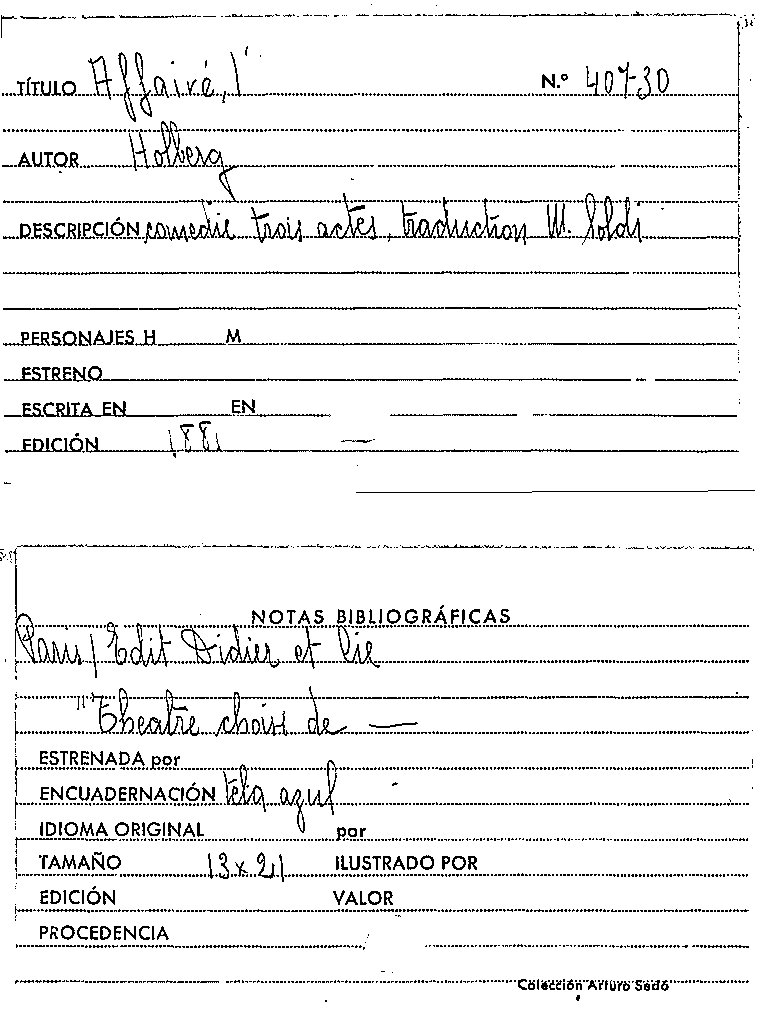 TÍTULO Affairé, l' N.º 407-30
AUTOR Holberg
DESCRIPCIÓN comedie trois actes, traduction M. Soldi
PERSONAJES H M
ESTRENO
ESCRITA EN EN
EDICIÓN 1881 —
NOTAS BIBLIOGRÁFICAS
Paris / Edit Didier et Cie
"Theatre choisi de —
ESTRENADA por
ENCUADERNACIÓN tela azul
IDIOMA ORIGINAL por
TAMAÑO 13 x 21 ILUSTRADO POR
EDICIÓN VALOR
PROCEDENCIA
Colección Arturo Sedó